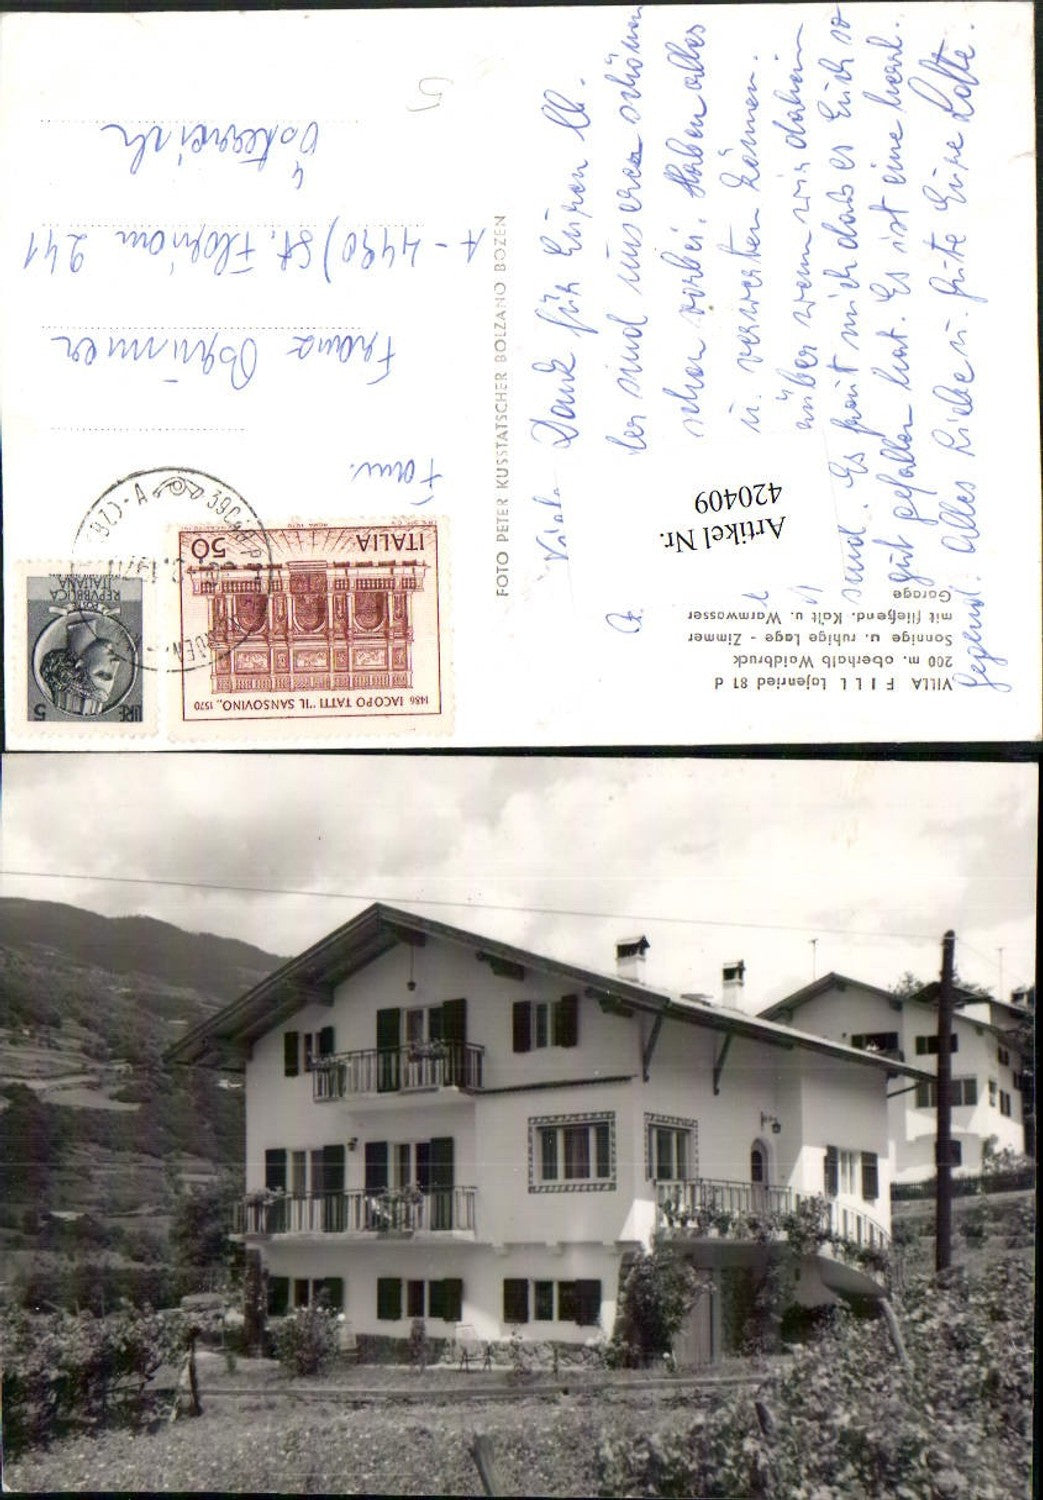 VILLA FILL Lajenried 81 d
200 m. oberhalb Waidbruck
Sonnige u. ruhige Lage - Zimmer
mit fließend. Kalt u. Warmwasser
Garage
Artikel Nr.
420409
FOTO PETER KUSSTATSCHER BOLZANO BOZEN
Dank für Euren lb.
sind unsere schönen
schon vorbei. Haben alles
u. verwerten können.
über wenn wir daheim
sind. Es freut mich das es Euch so
gut gefallen hat. Es ist eine herrl.
Gegend. Alles Liebe u. Gute Eure Lotte.
Fam.
Franz
A-4490) St. Florian 241
Österreich
1486 IACOPO TATTI "IL SANSOVINO" 1570
ITALIA 50
LIRE 5
REPVBBLICA
ITALIANA